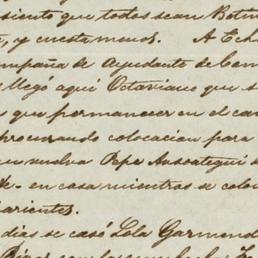 siento que todos sean Botm
, y cuesta menos. A Ech
mpaña de Ayudante de Cam
llegó aquí Octaviano que s
que permanecer en el ca
procurando colocacion para
vuelva Pepe Ansoategui d
en casa mientras se colo
arientes.
dias se casó Lola Garmend